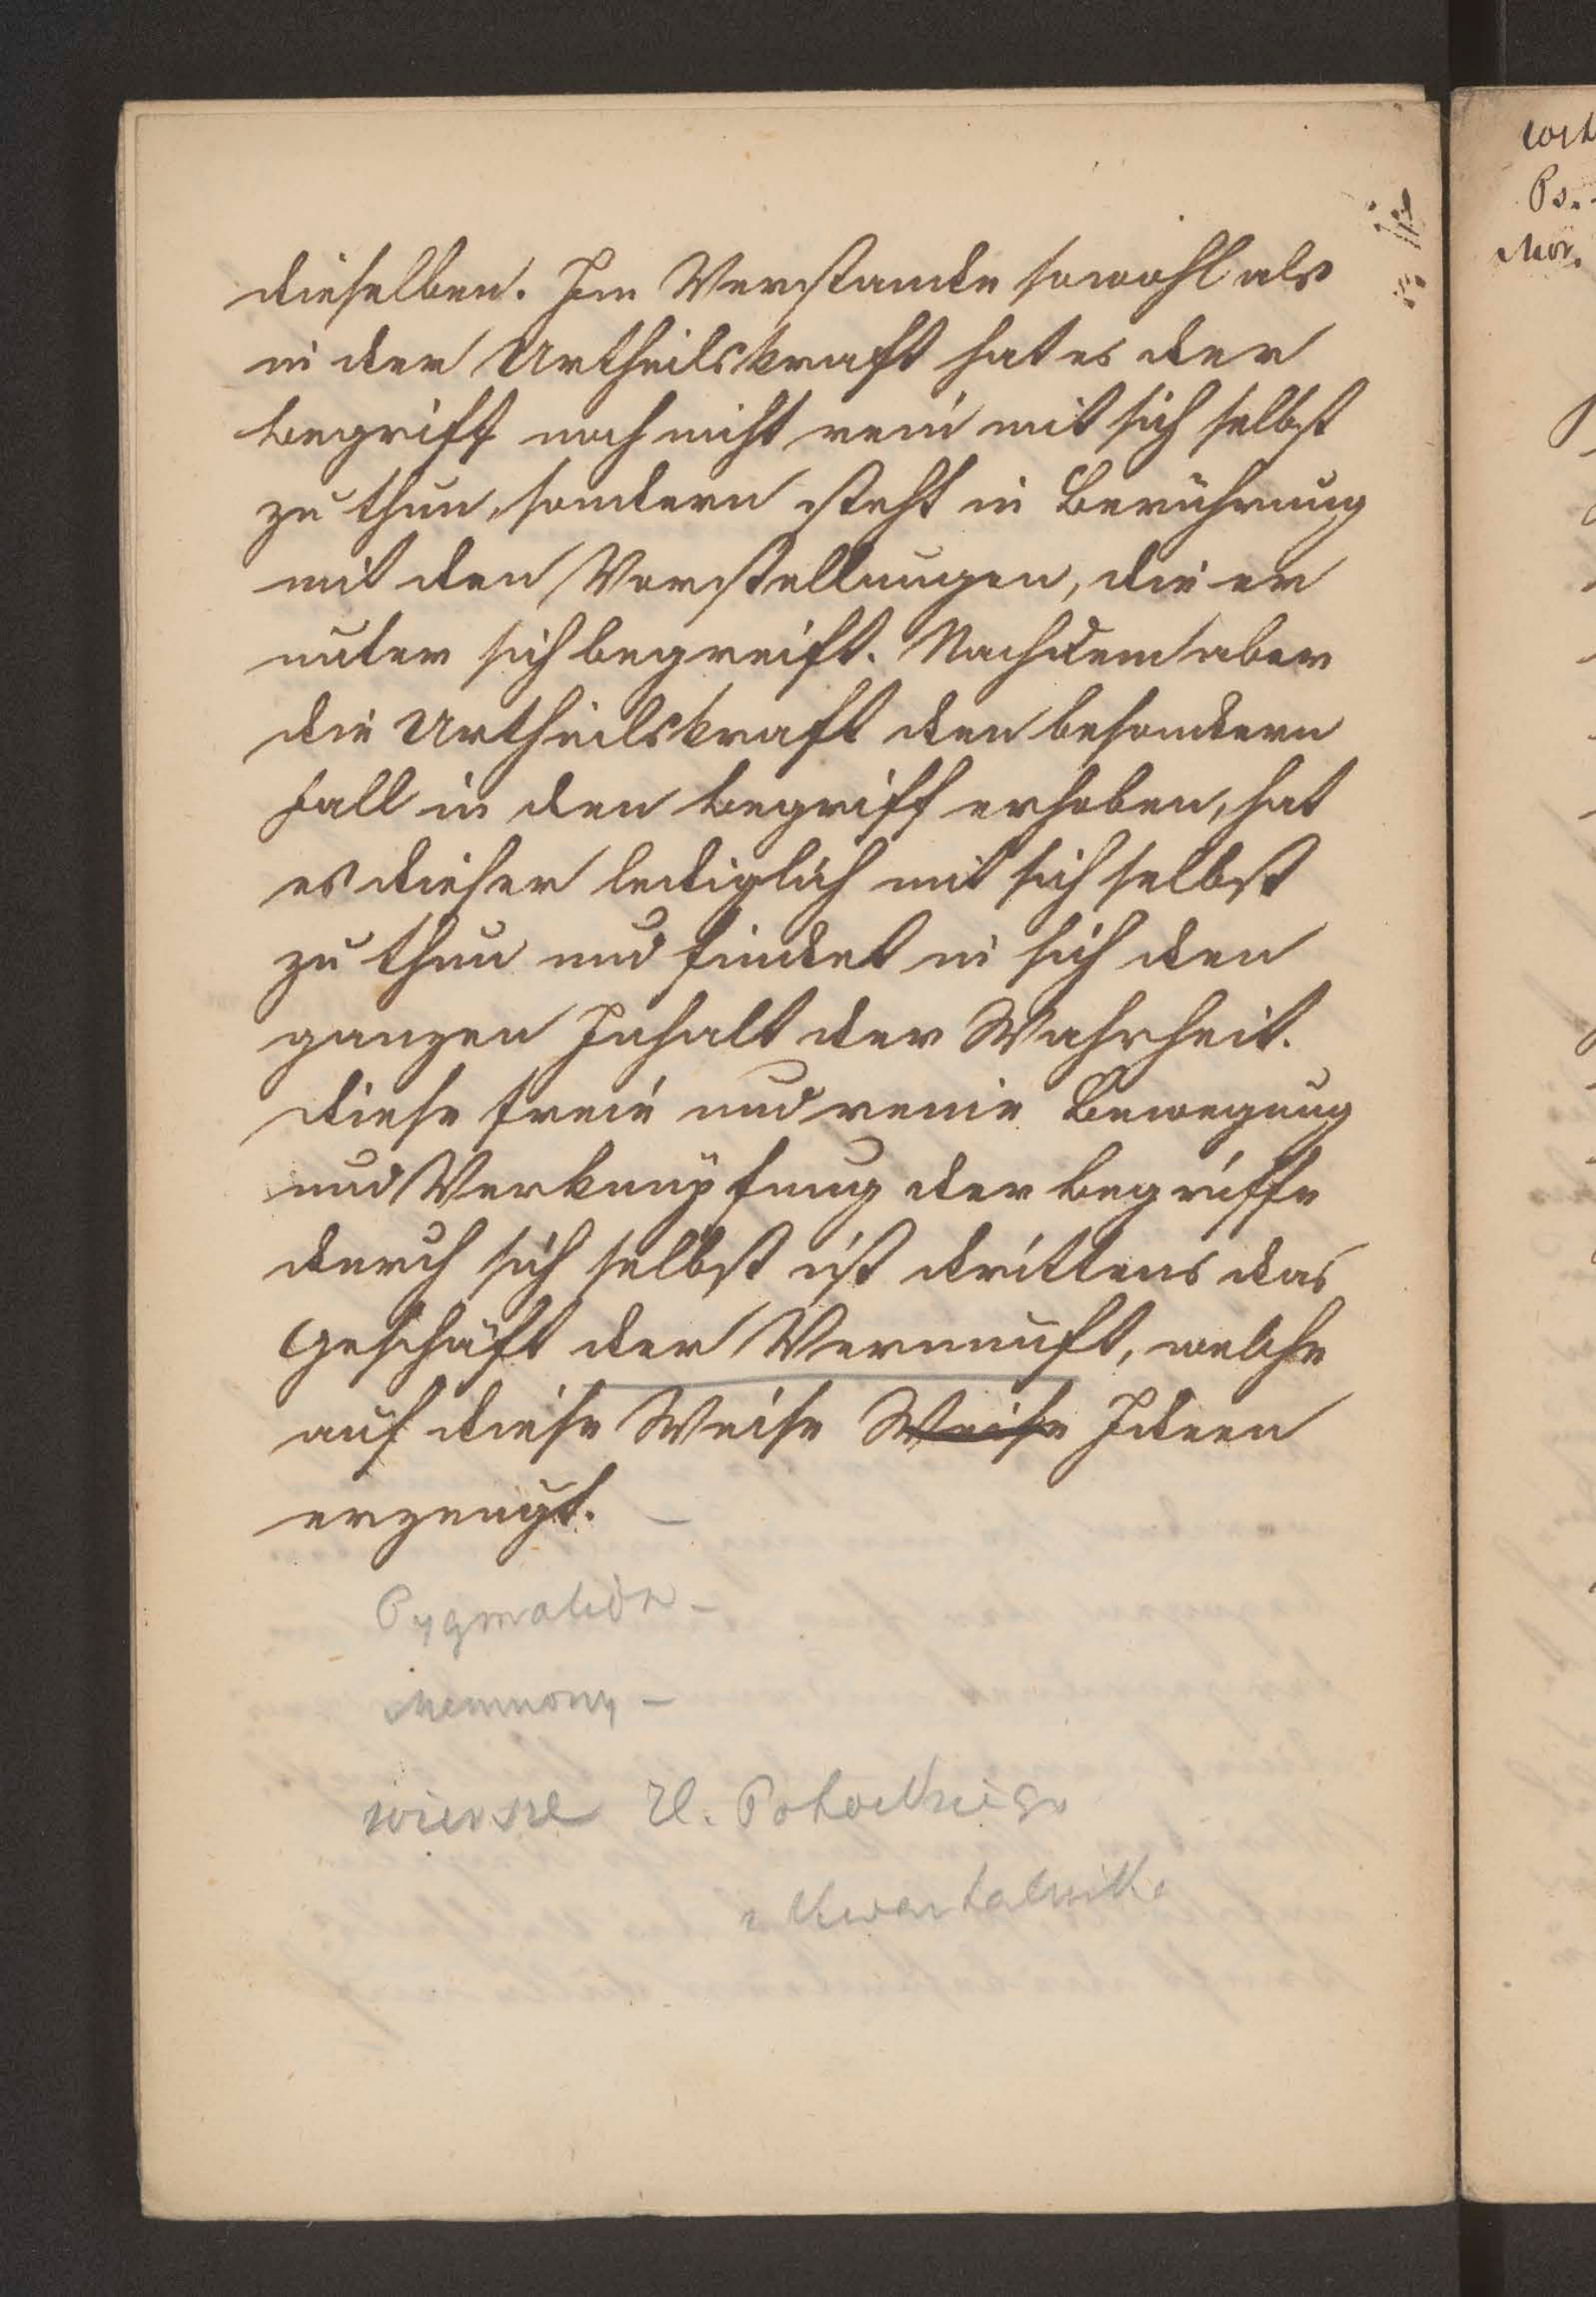 dieselben. Im Verstande sowohl als
in der Urtheilskraft hat es der
Begriff noch nicht rein mit sich selbst
zu thun, sondern steht in Berührung
mit den Vorstellungen, die er
unter sich begreift. Nachdem aber
die Urtheilskraft den besondern
Fall in den Begriff erhoben, hat
es dieser lediglich mit sich selbst
zu thun und findet in sich den
ganzen Inhalt der Wahrheit.
Diese freie und reine Bewegung
und Verknüpfung der Begriffe
durch sich selbst ist drittens das
Geschäft der Vernunft, welche
auf diese Weise Weise Ideen
erzeugt. –
Pygmalion –
Memnony –
wiersze Potockiego
z Kwartalnika
Ps.
Mor.